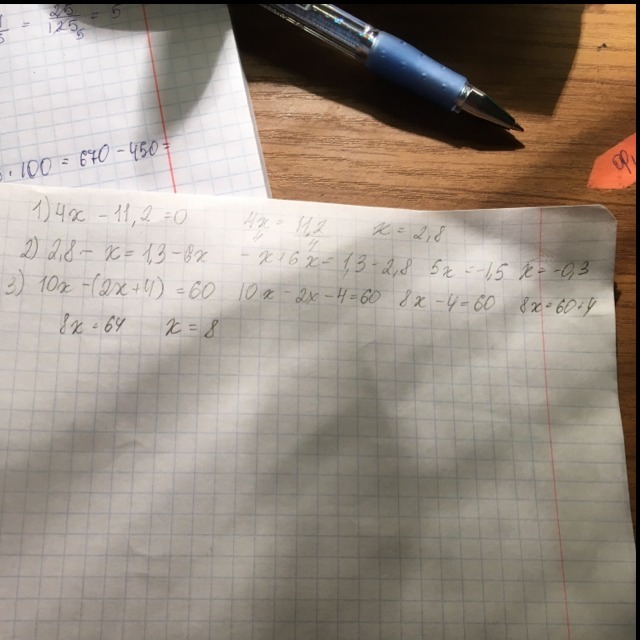 = 25/125 = 5
· 100 = 670 - 450 =
1) 4x - 11,2 = 0 4x/4 = 11,2/4 x = 2,8
2) 2,8 - x = 1,3 - 6x - x + 6x = 1,3 - 2,8 5x = -1,5 x = -0,3
3) 10x - (2x + 4) = 60 10x - 2x - 4 = 60 8x - 4 = 60 8x = 60 + 4
8x = 64 x = 8